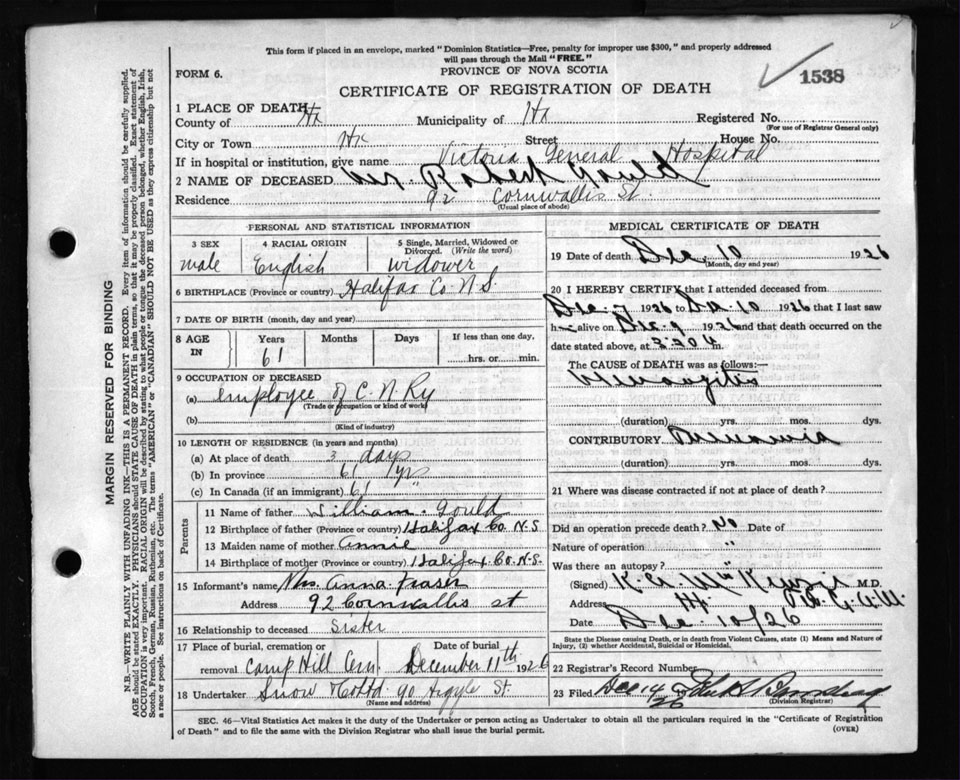 This form if placed in an envelope, marked "Dominion Statistics—Free, penalty for improper use $300," and properly addressed
will pass through the Mail "FREE."
PROVINCE OF NOVA SCOTIA
FORM 6.
1538
CERTIFICATE OF REGISTRATION OF DEATH
1 PLACE OF DEATH
County of Hx Municipality of Hx Registered No.
(For use of Registrar General only)
City or Town Hx Street House No.
If in hospital or institution, give name Victoria General Hospital
2 NAME OF DECEASED Mr. Robert Gould
Residence 92 Cornwallis St
(Usual place of abode)
PERSONAL AND STATISTICAL INFORMATION
3 SEX 4 RACIAL ORIGIN 5 Single, Married, Widowed or
Divorced. (Write the word)
male English widower
6 BIRTHPLACE (Province or country) Halifax Co. N.S.
7 DATE OF BIRTH (month, day and year)
8 AGE IN Years Months Days If less than one day,
61 hrs. or min.
9 OCCUPATION OF DECEASED
(a) employee of C. N. Ry
(Trade or occupation or kind of work)
(b)
(Kind of industry)
10 LENGTH OF RESIDENCE (in years and months)
(a) At place of death 3 days
(b) In province 61 yrs
(c) In Canada (if an immigrant) 61
Parents
11 Name of father William Gould
12 Birthplace of father (Province or country) Halifax Co. N.S.
13 Maiden name of mother Annie
14 Birthplace of mother (Province or country) Halifax Co. N.S.
15 Informant's name Mrs. Anna Fraser
Address 92 Cornwallis st
16 Relationship to deceased Sister
17 Place of burial, cremation or Date of burial
removal Camp Hill Cem. December 11th 1926
18 Undertaker Snow & Co Ltd 90 Argyle St.
(Name and address)
MEDICAL CERTIFICATE OF DEATH
19 Date of death Dec. 10 1926
(Month, day and year)
20 I HEREBY CERTIFY that I attended deceased from
Dec. 7 1926 to Dec. 10 1926 that I last saw
h alive on Dec. 9 1926 and that death occurred on
date stated above, at m.
The CAUSE OF DEATH was as follows:—
Meningitis
(duration) yrs. mos. dys.
CONTRIBUTORY Pneumonia
(duration) yrs. mos. dys.
21 Where was disease contracted if not at place of death?
Did an operation precede death? No Date of
Nature of operation "
Was there an autopsy? "
(Signed) M.D.
Address Hx
Dec. 10/26
State the Disease causing Death, or in death from Violent Causes, state (1) Means and Nature of
Injury, (2) whether Accidental, Suicidal or Homicidal.
22 Registrar's Record Number
23 Filed Dec 14 26
(Division Registrar)
SEC. 46—Vital Statistics Act makes it the duty of the Undertaker or person acting as Undertaker to obtain all the particulars required in the "Certificate of Registration
of Death" and to file the same with the Division Registrar who shall issue the burial permit.
(OVER)
MARGIN RESERVED FOR BINDING
N.B.—WRITE PLAINLY WITH UNFADING INK—THIS IS A PERMANENT RECORD. Every item of information should be carefully supplied.
AGE should be stated EXACTLY. PHYSICIANS should STATE CAUSE OF DEATH in plain terms, so that it may be properly classified. Exact statement of
OCCUPATION is very important. RACIAL ORIGIN will be described by stating to what people or tongue the deceased person belonged, whether English, Irish,
Scotch, French, German, Russian, Ruthenian, etc. The terms "AMERICAN" or "CANADIAN" SHOULD NOT BE USED as they express citizenship but not
a race or people. See instructions on back of Certificate.